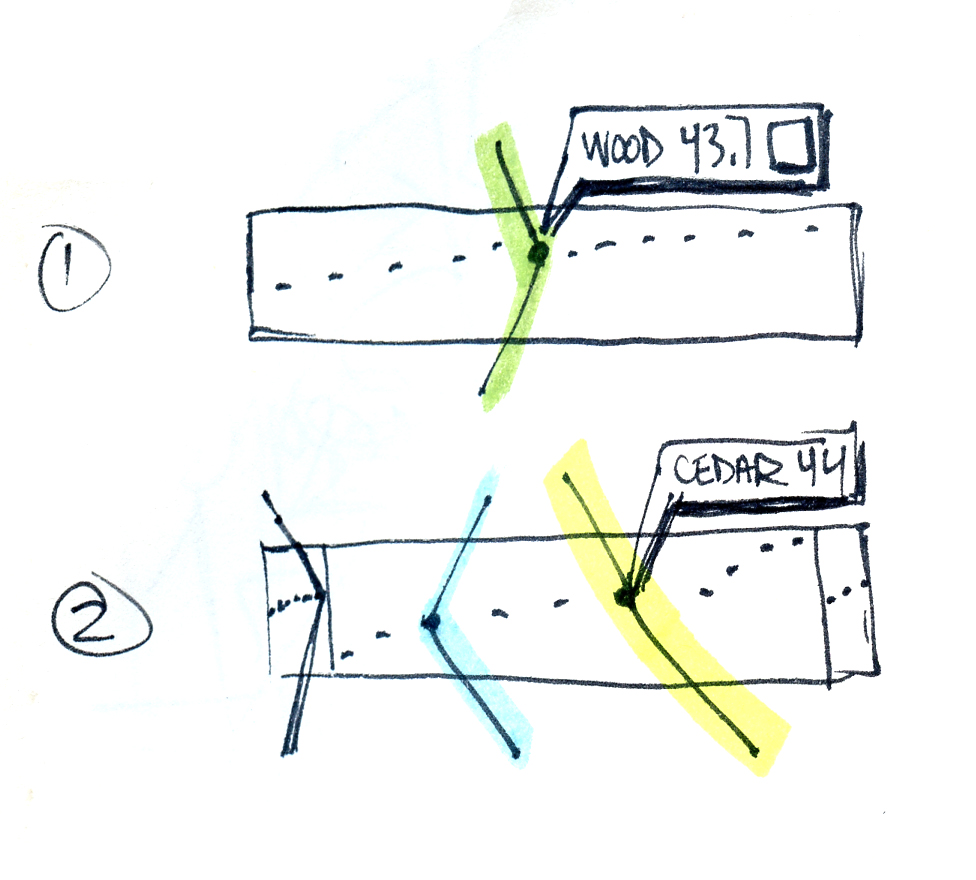 WOOD 43.7
1
CEDAR 44
2